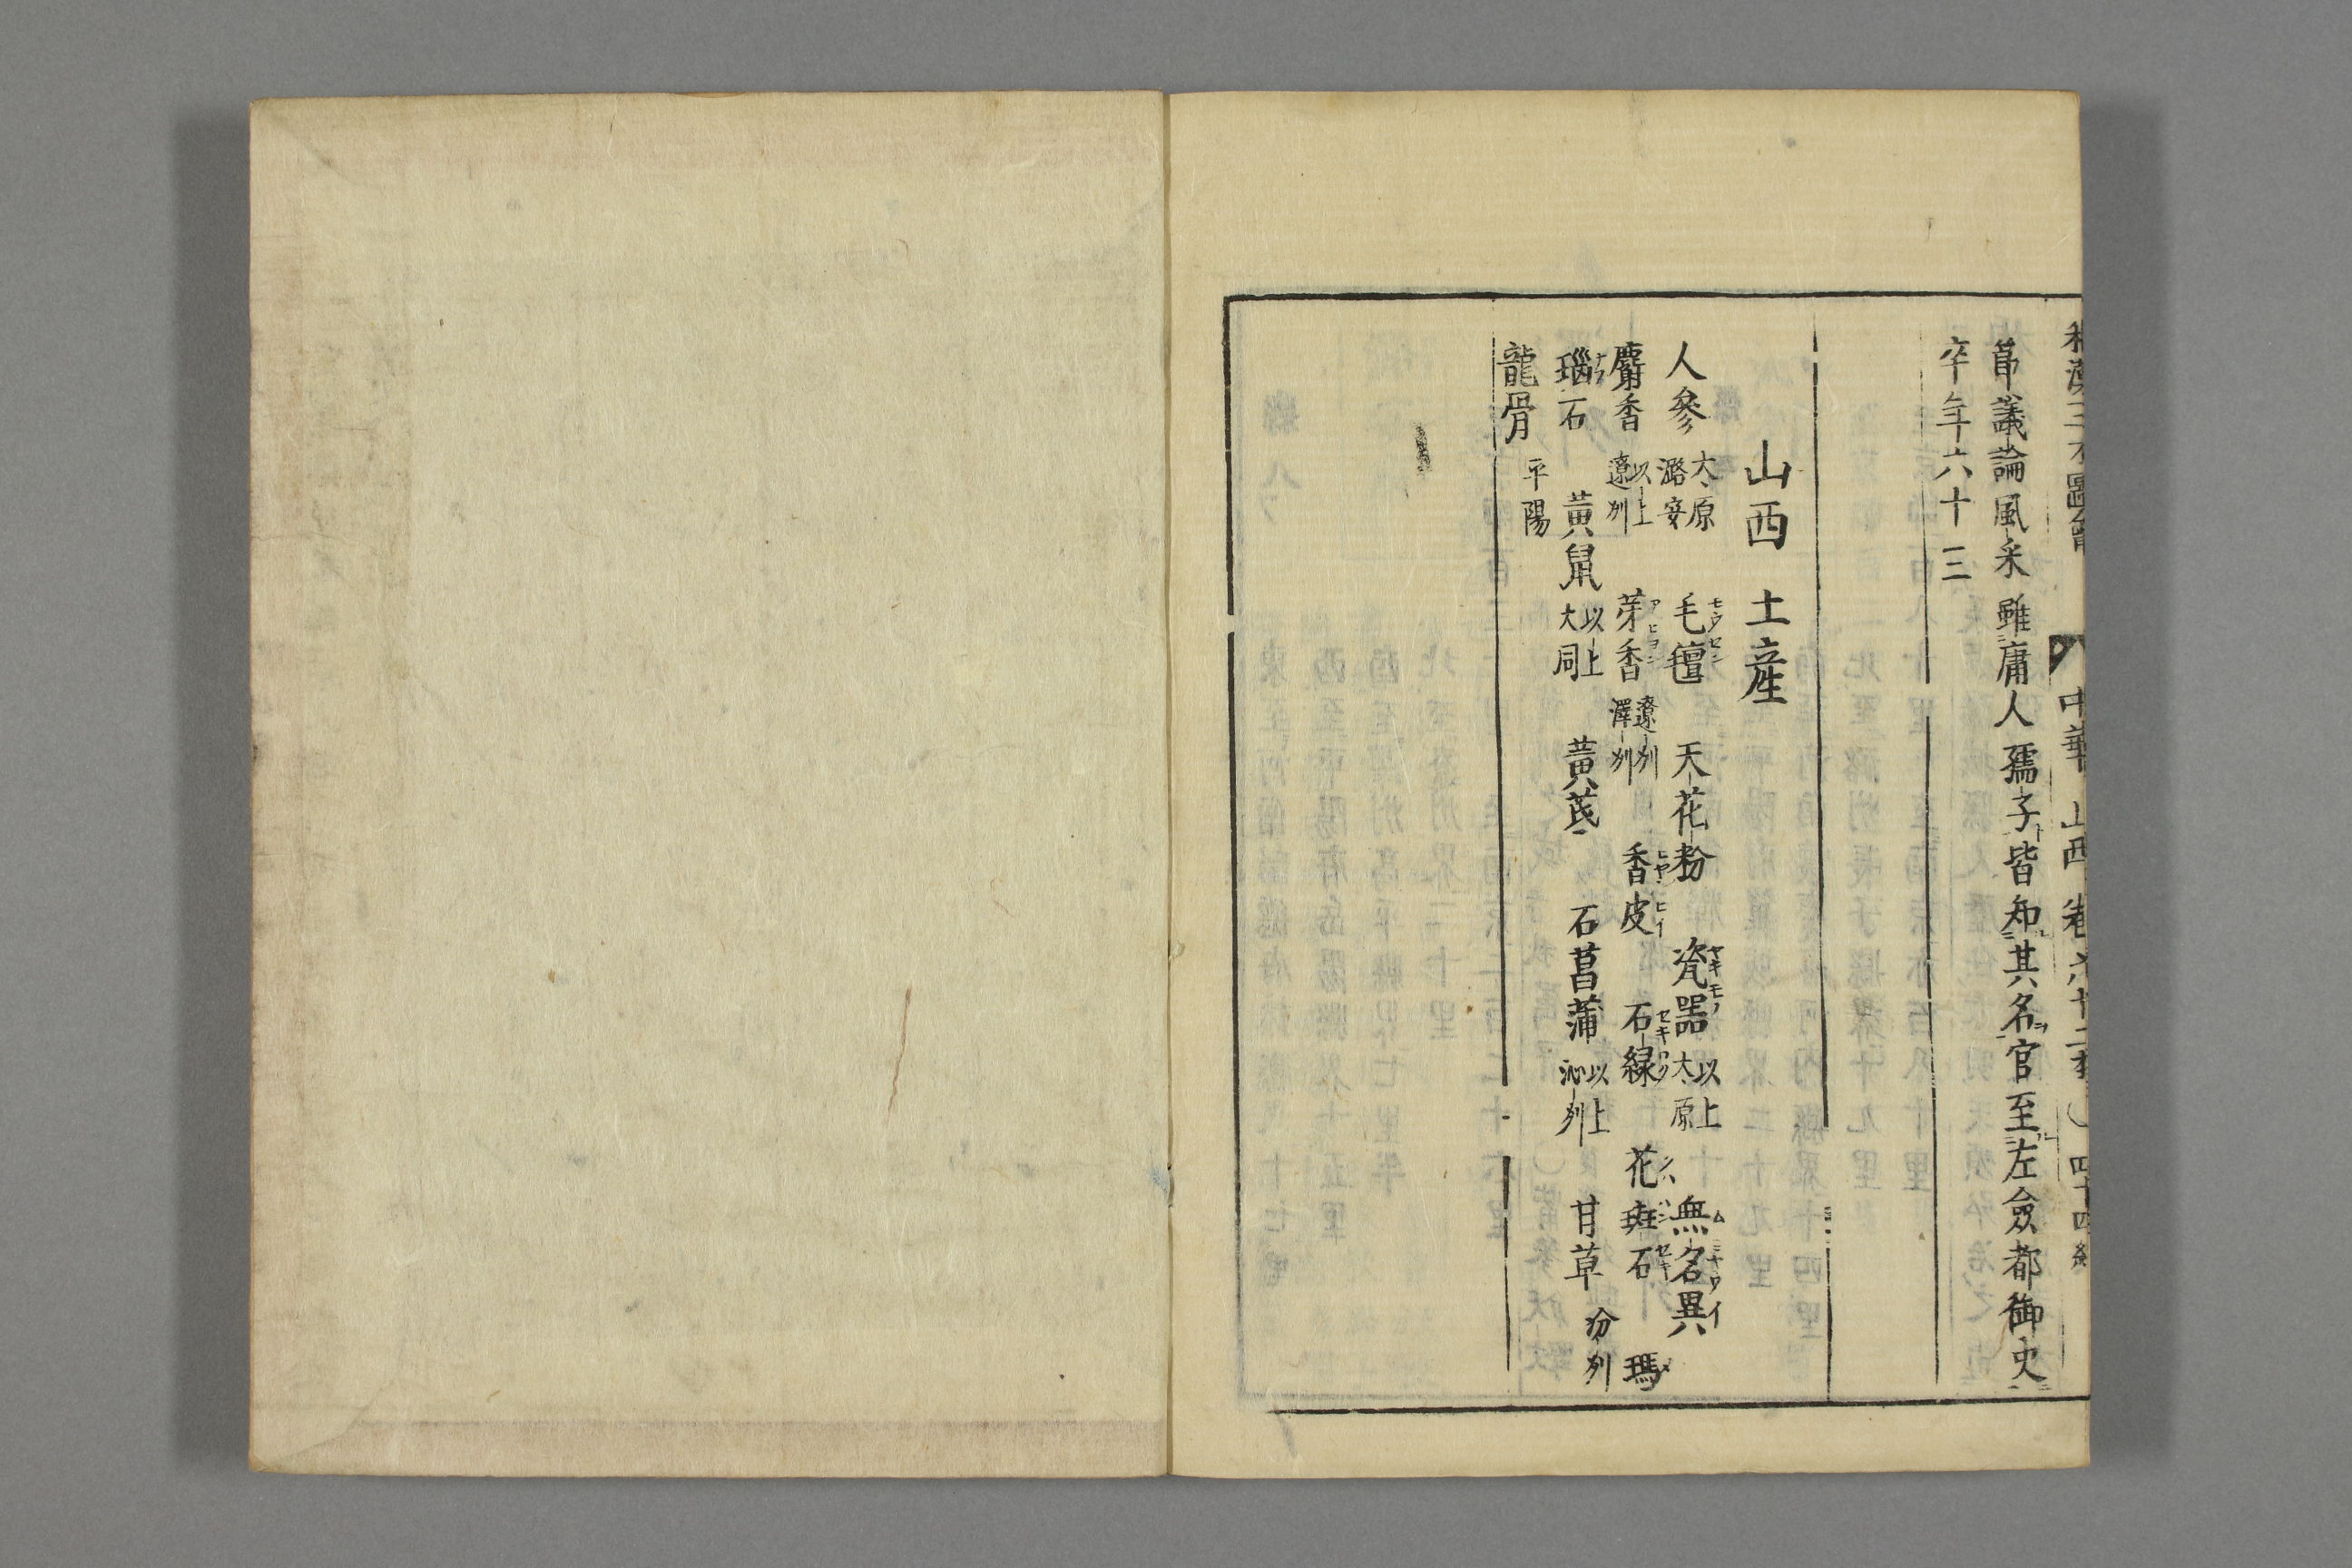 和漢三才圖會 中華 山西 卷六十二本 ○ 四十四終
節議論風采雖庸人孺子皆知其名官至左僉都御史
卒年六十三
山西土産
人參 太原 潞安 毛氊 天花粉 瓷器 以上 太原 無名異
麝香 以上 遼州 芽香 遼州 澤州 香皮 石緑 花斑石 瑪
瑙石 黃鼠 以上 大同 黃芪 石菖蒲 以上 沁州 甘草 汾州
龍骨 平陽